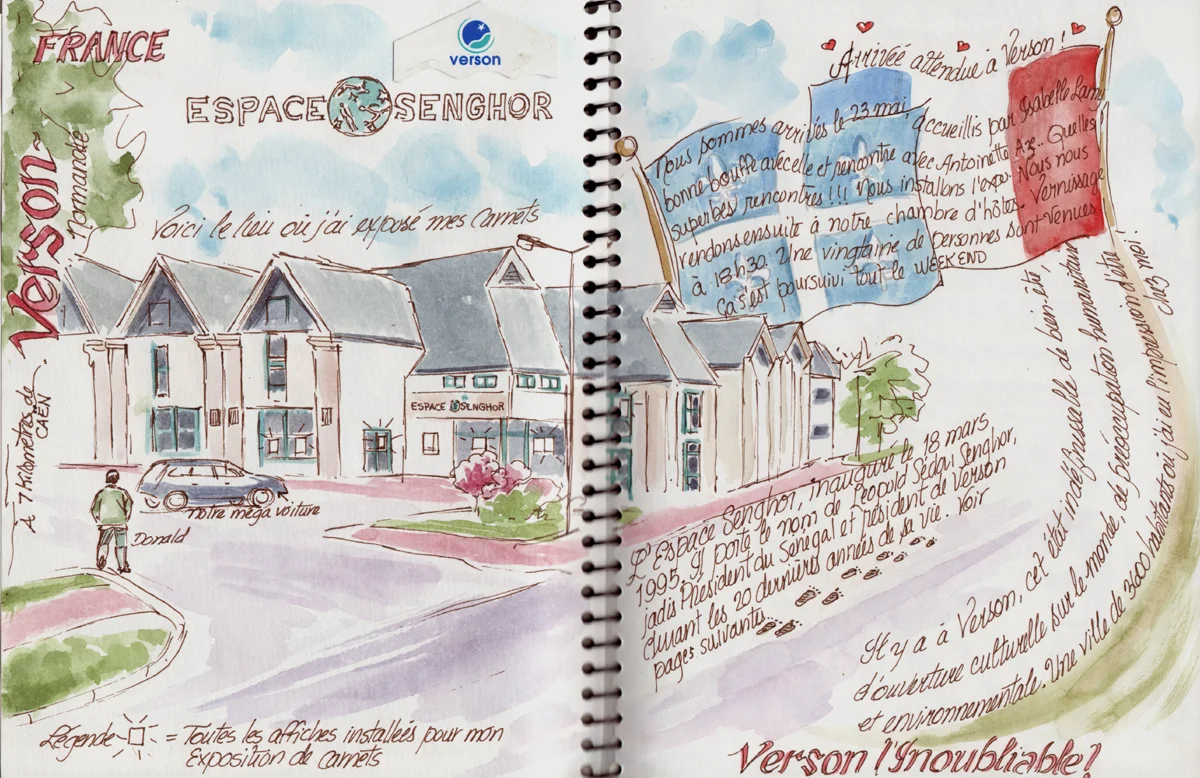 FRANCE
Verson ~
Normandie
À 7 Kilomètres de
CAËN
verson
ESPACE SENGHOR
Voici le lieu où j'ai exposé mes carnets
ESPACE SENGHOR
notre méga voiture
Donald
Légende = Toutes les affiches installées pour mon
Exposition de carnets
Arrivée attendue à Verson !
Nous sommes arrivés le 23 mai, accueillis par Isabelle
bonne bouffe avec elle et rencontre avec Antoinette A... Quelles
superbes rencontres !!! Nous installons l'expo. Nous nous
rendons ensuite à notre chambre d'hôtes. Vernissage
à 18h30. Une vingtaine de personnes sont venues
Ça s'est poursuivi tout le WEEKEND
L'Espace Senghor, inauguré le 18 mars
1995, porte le nom de Léopold Sédar Senghor,
jadis Président du Sénégal et résident de Verson
durant les 20 dernières années de sa vie. Voir
pages suivantes
Il y a à Verson, cet état indéfinissable de bien être,
d'ouverture culturelle sur le monde, de préoccupation humanitaire
et environnementale. Une ville de 3600 habitants où j'ai eu l'impression d'être
chez moi!
Verson l'Inoubliable!